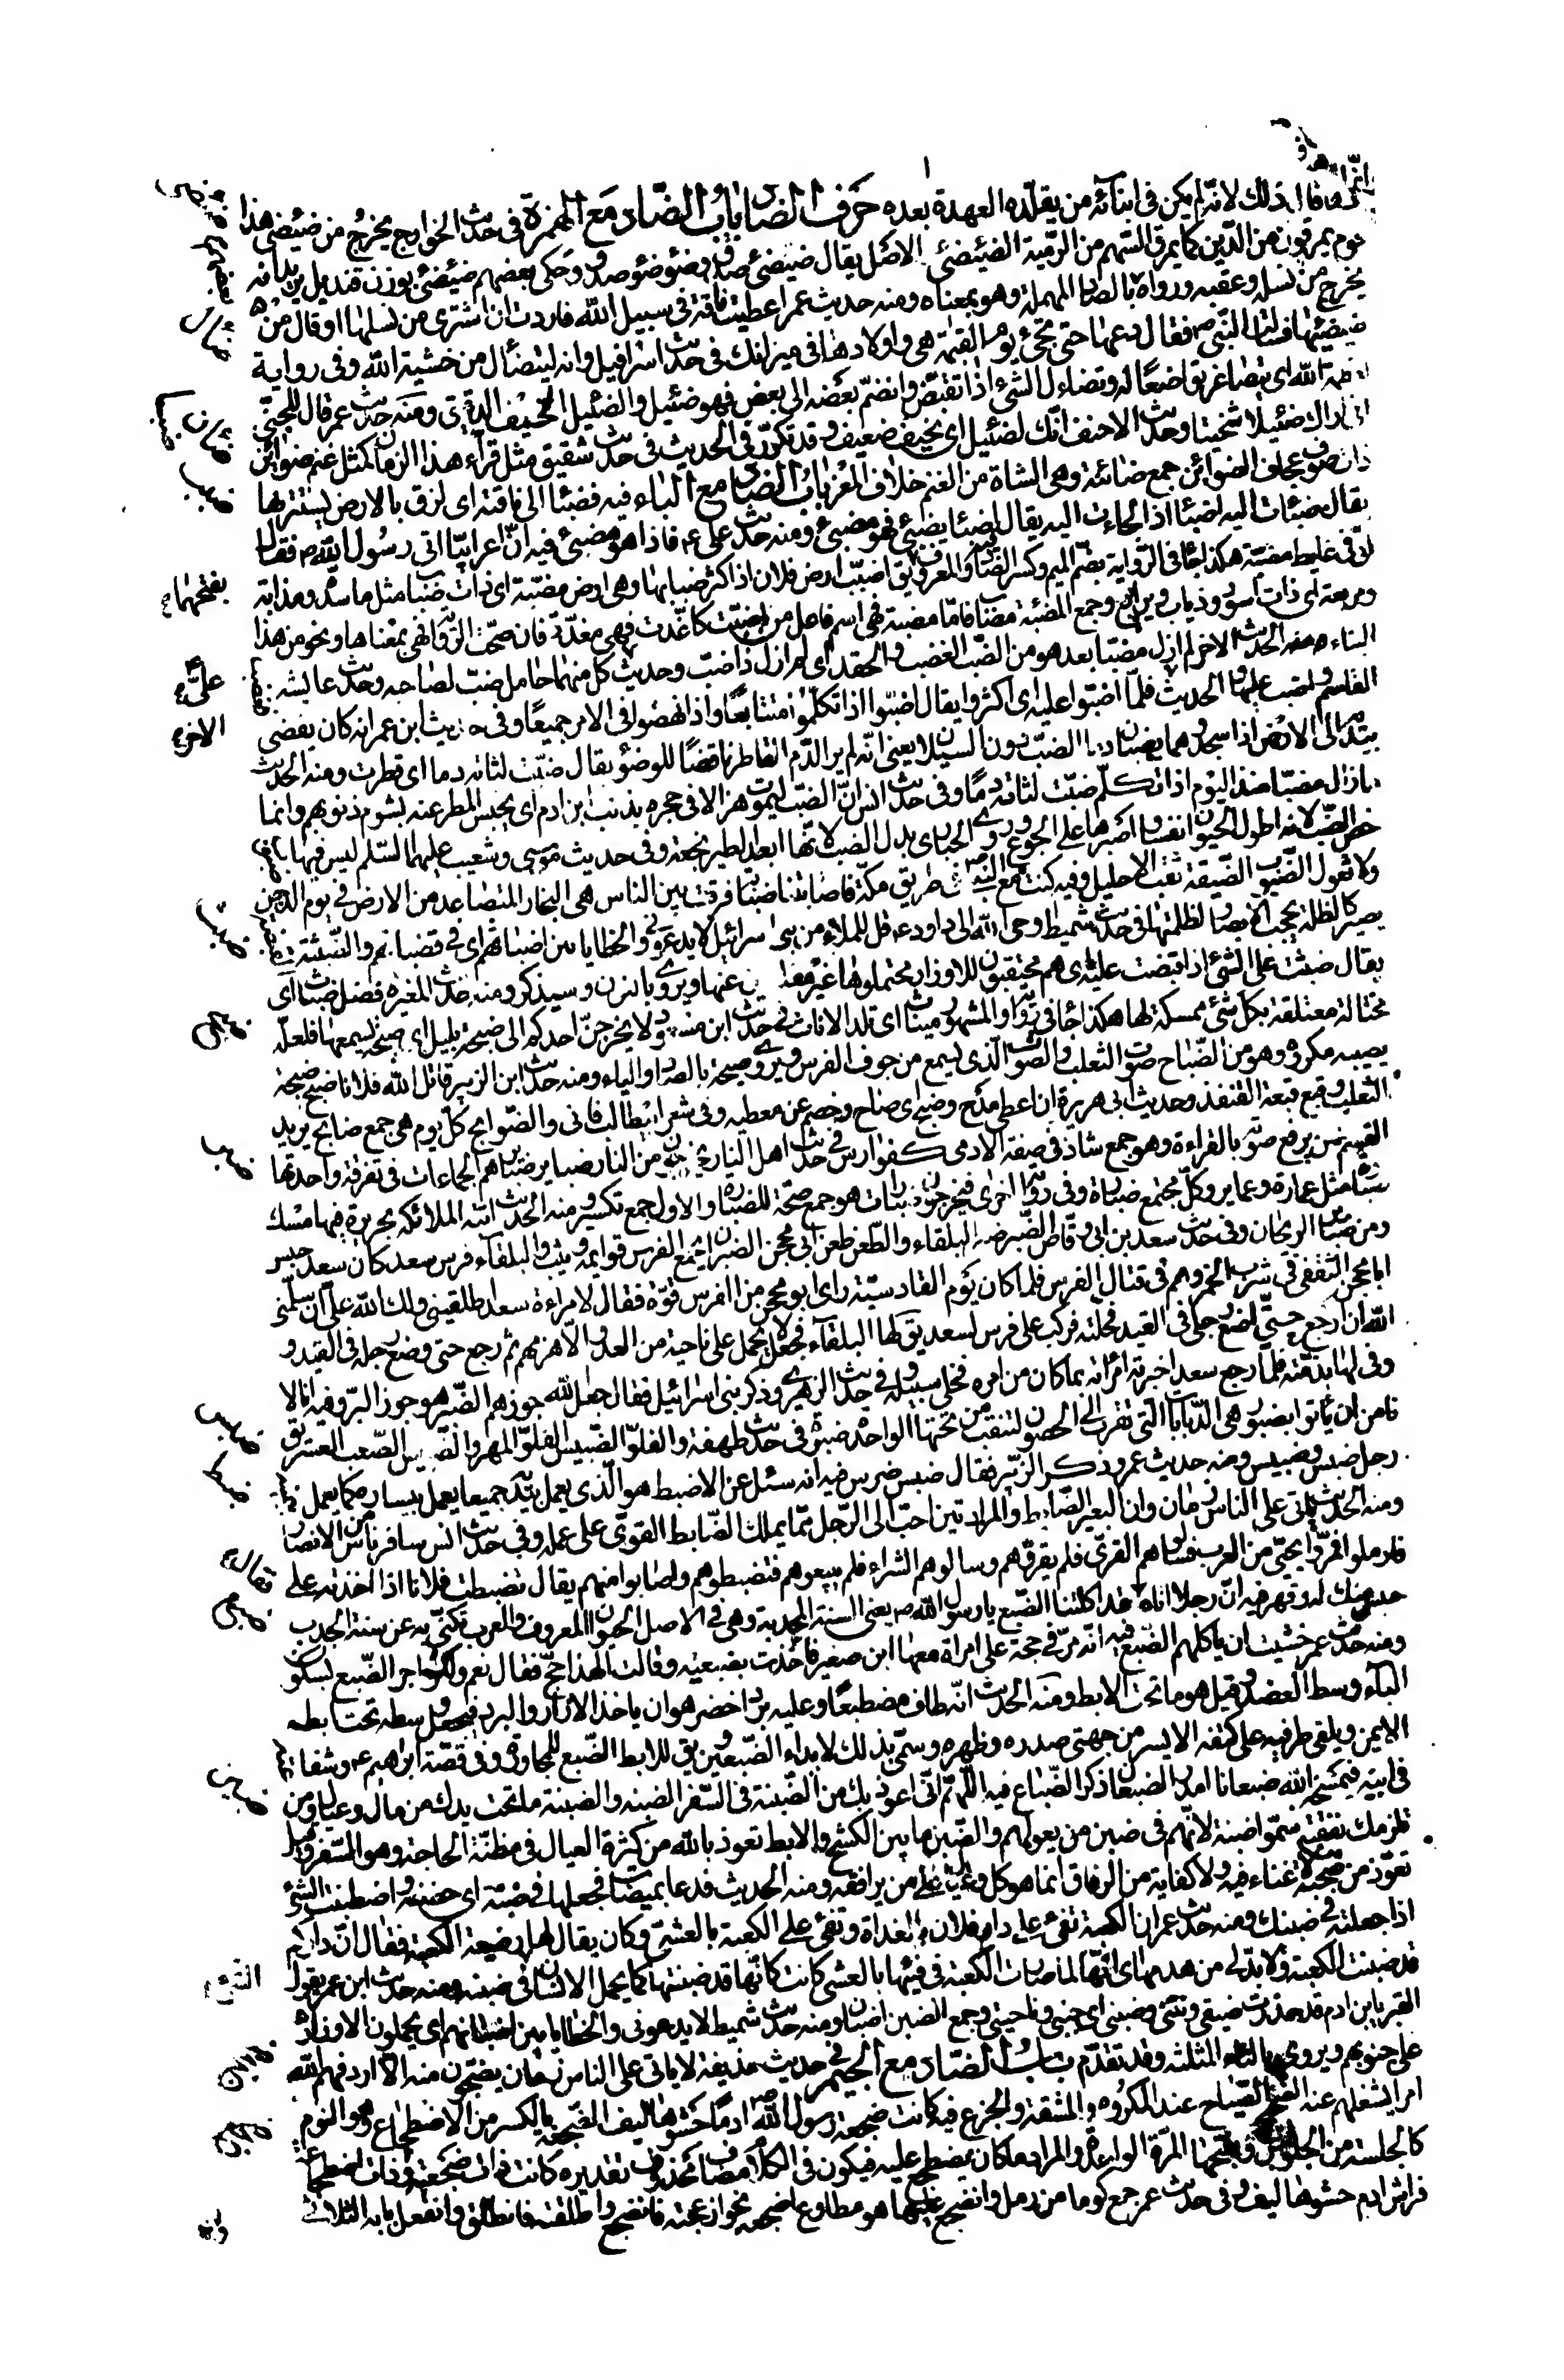 وانما قال ذلك لانه لم يكن في ابنائه من يقلده العهدة بعده حرف الضاد باب الضاد مع الهمزة في حديث الخوارج يخرج من ضئضئ هذا
قوم يمرقون من الدين كما يمرق السهم من الرمية الضئضئ الاصل يقال ضئضئ صدق وضؤضؤ صدق وحكى بعضهم ضئضئ بوزن قنديل يريد انه
يخرج من نسله وعقبه ورواه بالصاد المهملة وهو بمعناه ومنه حديث عمر اعطيت ناقة في سبيل الله فاردت ان اشترى من نسلها او قال من
ضئضئها فسالت النبي ص فقال دعها حتى تجئ يوم القيمة هي واولادها في ميزانك في حديث اسرافيل وانه ليتضأل من خشية الله وفي رواية
الله اى يتصاغر تواضعا له وتضاءل الشئ اذا تقبض وانضم بعضه الى بعض فهو ضئيل والضئيل النحيف الدقيق ومنه حديث عمر قال للجني
اراك ضئيلا شخيتا وحديث الاحنف انك لضئيل اى نحيف ضعيف وقد تكرر في الحديث في حديث شقيق مثل قراء هذا الزمان كمثل غنم ضوائن
ذات صوف عجاف الضوائن جمع ضائنة وهي الشاة من الغنم خلاف المعز باب الضاد مع الباء فيه فضبأ الى ناقته اى لزق بالارض يستتر بها
يقال ضبأت اليه اضبأ اذا لجاءت اليه يقال اضبأ يضبئ فهو مضبئ ومنه حديث علي ع فاذا هو مضبئ فيه ان اعرابيا اتى رسول الله ص فقال
انى في غايط مضبة هكذا جا في الرواية بضم الميم وكسر الضاد والمعروف بفتحهما يق اضبت ارض فلان اذا كثر ضبابها وهي ارض مضبة اى ذات ضباب مثل ماسدة ومذابة
ومربعة اى ذات اسود وذياب ويرابيع وجمع المضبة مضاب فاما مضبة فهي اسم فاعل من اضبت كاغدت فهي مغدة فان صحت الرواية فهي بمعناها ونحو من هذا
البناء ومنه الحديث الاخر لم ازل مضبا بعد هو من الضب الغضب والحقد اى لم ازل ذا ضب وحديث علي ع كل منهما حامل ضب لصاحبه وحديث عايشه
القاسم واضب عليها والحديث الاخر فلما اضبوا عليه اى اكثروا يقال اضبوا اذا تكلموا متتابعا واذا نهضوا في الامر جميعا وفي حديث ابن عمر انه كان يفضي
بيديه الى الارض اذا سجد وهما يضبان دما الضب دون السيلان يعني انه لم ير الدم القاطر ناقضا للوضوء يقال ضبت لثاته دما اى قطرت ومنه الحديث
ما زال مضبا منذ اليوم اذا تكلم ضبت لثاته دما وفي حديث انس ان الضب ليموت هزلا في جحره بذنب ابن ادم اى يحبس المطر عنه بشوم ذنوبهم وانما
خص الضب لانه اطول الحيوان نفسا واصبرها على الجوع وروى الحبارى بدل الضب لانها ابعد الطير نجعة وفي حديث موسى وشعيب عليهما السلم ليس فيها
ولا ثعول الضبوب الضيقة ثقب الاحليل وفيه كنت مع النبي ص في طريق مكة فاصابتنا ضبابة فرقت بين الناس هي البخار المتصاعد من الارض في يوم الدجن
يصير كالظلة يحجب الابصار لظلمتها في حديث شميط اوحى الله الى داود ع قل للملاء من بنى اسرائيل لا يدعوني والخطايا بين اضباثهم اى في قبضاتهم والضبثة
يقال ضبثت على الشئ اذا قبضت عليه اى هم محتقبون للاوزار محتملوها غير مقلعين عنها ويروى بالنون وسيذكر ومنه حديث المغيرة فضل ضباث اى
مختالة معتلقة بكل شئ ممسكة لها هكذا جا في رواية والمشهور ميناث اى تلد الاناث في حديث ابن مسعود لا يخرجن احدكم الى ضبحة بليل اى صيحة يسمعها فلعله
يصيبه مكروه وهو من الضباح صوت الثعلب والصوت الذى يسمع من جوف الفرس ويروى صيحة بالصاد والياء ومنه حديث ابن الزبير قاتل الله فلانا ضبح ضبحة
الثعلب وقبع قبعة القنفذ وحديث ابي هريرة ان اعطي مدح وضبح اى صاح وخصم عن معطيه وفي شعر ابيطالب فاني والضوابح كل يوم هي جمع ضابح يريد
القسم بمن يرفع صوته بالقراءة وهو جمع شاذ في صفة الادمى كفوارس في حديث اهل النار يخرجون من النار ضباير ضباير هم الجماعات في تفرقة واحدتها
ضبارة مثل عمارة وعماير وكل مجتمع ضبارة وفي رواية اخرى فيخرجون ضبارات هو جمع صحة للضبارة والاول جمع تكسير ومنه الحديث اتته الملائكة بحريرة فيها مسك
ومن ضباير الريحان وفي حديث سعد بن ابي وقاص الضبر ضبر البلقاء والطعن طعن ابى محجن الضبر ان يجمع الفرس قوايمه ويثب والبلقاء فرس سعد كان سعد حبس
ابا محجن الثقفي في شرب الخمر وهم في قتال الفرس فلما كان يوم القادسية راى ابو محجن من الفرس قوة فقال لامراءة سعد اطلقيني ولك الله علي ان سلمني
الله ان ارجع حتى اضع رجلي في القيد فحلته فركب على فرس لسعد يق لها البلقاء فجعل لا يحمل على ناحية من العدو الا هزمهم ثم رجع حتى وضع رجله في القيد و
وفي لها بذمته فلما رجع سعد اخبرته امراته بما كان من امره فخلى سبيله وفي حديث الزهري وذكر بني اسرائيل فقال جعل الله جوزهم الضبر هو جوز البر وفيه انا لا
نامن ان ياتوا بضبور هي الدبابات التي تقرب الى الحصون لتنقب من تحتها الواحدة ضبرة في حديث طهفة والفلو الضبيس الفلو المهر والضبيس الصعب العسر يق
رجل ضبس وضبيس ومنه حديث عمر وذكر الزبير فقال ضبس ضرس فيه انه سئل عن الاضبط هو الذى يعمل بيديه جميعا يعمل بيساره كما يعمل
ومنه الحديث ياتي على الناس زمان وان البعير الضابط والمزادتين احب الى الرجل مما يملك الضابط القوى على عمله وفي حديث انس سافر ناس من الانصار
فارملوا فمروا بحي من العرب فسالوهم القرى فلم يقروهم وسالوهم الشراء فلم يبيعوهم فتضبطوهم واصابوا منهم يقال تضبطت فلانا اذا اخذته على
حبس منك له وقهر فيه ان رجلا اتاه فقال قد اكلتنا الضبع يا رسول الله ص يعنى السنة المجدبة وهي في الاصل الحيوان المعروف والعرب تكنى به عن سنة الجدب
ومنه حديث عمر خشيت ان ياكلهم الضبع فيه انه مر في حجة على امراة معها ابن صغير فاخذت بضبعيه وقالت الهذا حج فقال نعم ولك اجر الضبع بسكون
الباء وسط العضد وقيل هو ما تحت الابط ومنه الحديث انه طاف مضطبعا وعليه برد اخضر هو ان ياخذ الازار والبرد فيجعل وسطه تحت ابطه
الايمن ويلقى طرفيه على كتفه الايسر من جهتي صدره وظهره وسمى بذلك لابداء الضبعين ويق للابط الضبع للمجاورة وفي قصة ابراهيم ع وشفاعته
في ابيه فيمسخه الله ضبعانا امدر الضبعان ذكر الضباع فيه اللهم اني اعوذ بك من الضبنة في السفر الضبنه والضبنة ما تحت يدك من مال وعيال ومن
تلزمك نفقته سموا ضبنة لانهم في ضبن من يعولهم والضبن ما بين الكشح والابط تعوذ بالله من كثرة العيال في مظنة الحاجة وهو السفر وقيل
تعوذ من صحبة من لا غناء فيه ولا كفاية من الرفاق انما هو كل وعيال على من يرافقه ومنه الحديث فدعا بميضاة فجعلها في ضبنه اى حضنه واضطبنت الشئ
اذا جعلته في ضبنك ومنه حديث عمر ان الكعبة تفئ على دار فلان بالغداة وتفئ على الكعبة بالعشي وكان يقال لها رضيعة الكعبة فقال ان داركم
قد ضبنت الكعبة ولا بد لي من هدمها اى انها لما صارت الكعبة في فيئها بالعشى كانت كانها قد ضبنتها كما يحمل الانسان الشئ في ضبنه ومنه حديث ابن عمر يقول
القبر يا ابن ادم قد حذرت ضيقي ونتني وضبني اى جنبي وناحيتي وجمع الضبن اضبان ومنه حديث شميط لا يدعوني والخطايا بين اضبانهم اى يحملون الاوزار
على جنوبهم ويروى بالثاء المثلثة وقد تقدم باب الضاد مع الجيم في حديث حذيفة لا ياتي على الناس زمان يضجون منه الا اردفهم الله
امرا يشغلهم عنه الضجيج الصياح عند المكروه والمشقة والجزع فيه كانت ضجعة رسول الله ص ادما حشوها ليف الضجعة بالكسر من الاضطجاع وهو النوم
كالجلسة من الجلوس وبفتحها المرة الواحدة والمراد ما كان يضطجع عليه فيكون في الكلام مضاف محذوف تقديره كانت ذات ضجعته او ذات اضطجاعه
فراش ادم حشوها ليف وفي حديث عمر جمع كومة من رمل وانضجع عليها هو مطاوع اضجعه نحو ازعجته فانزعج واطلقته فانطلق وانفعل بابه الثلاثي